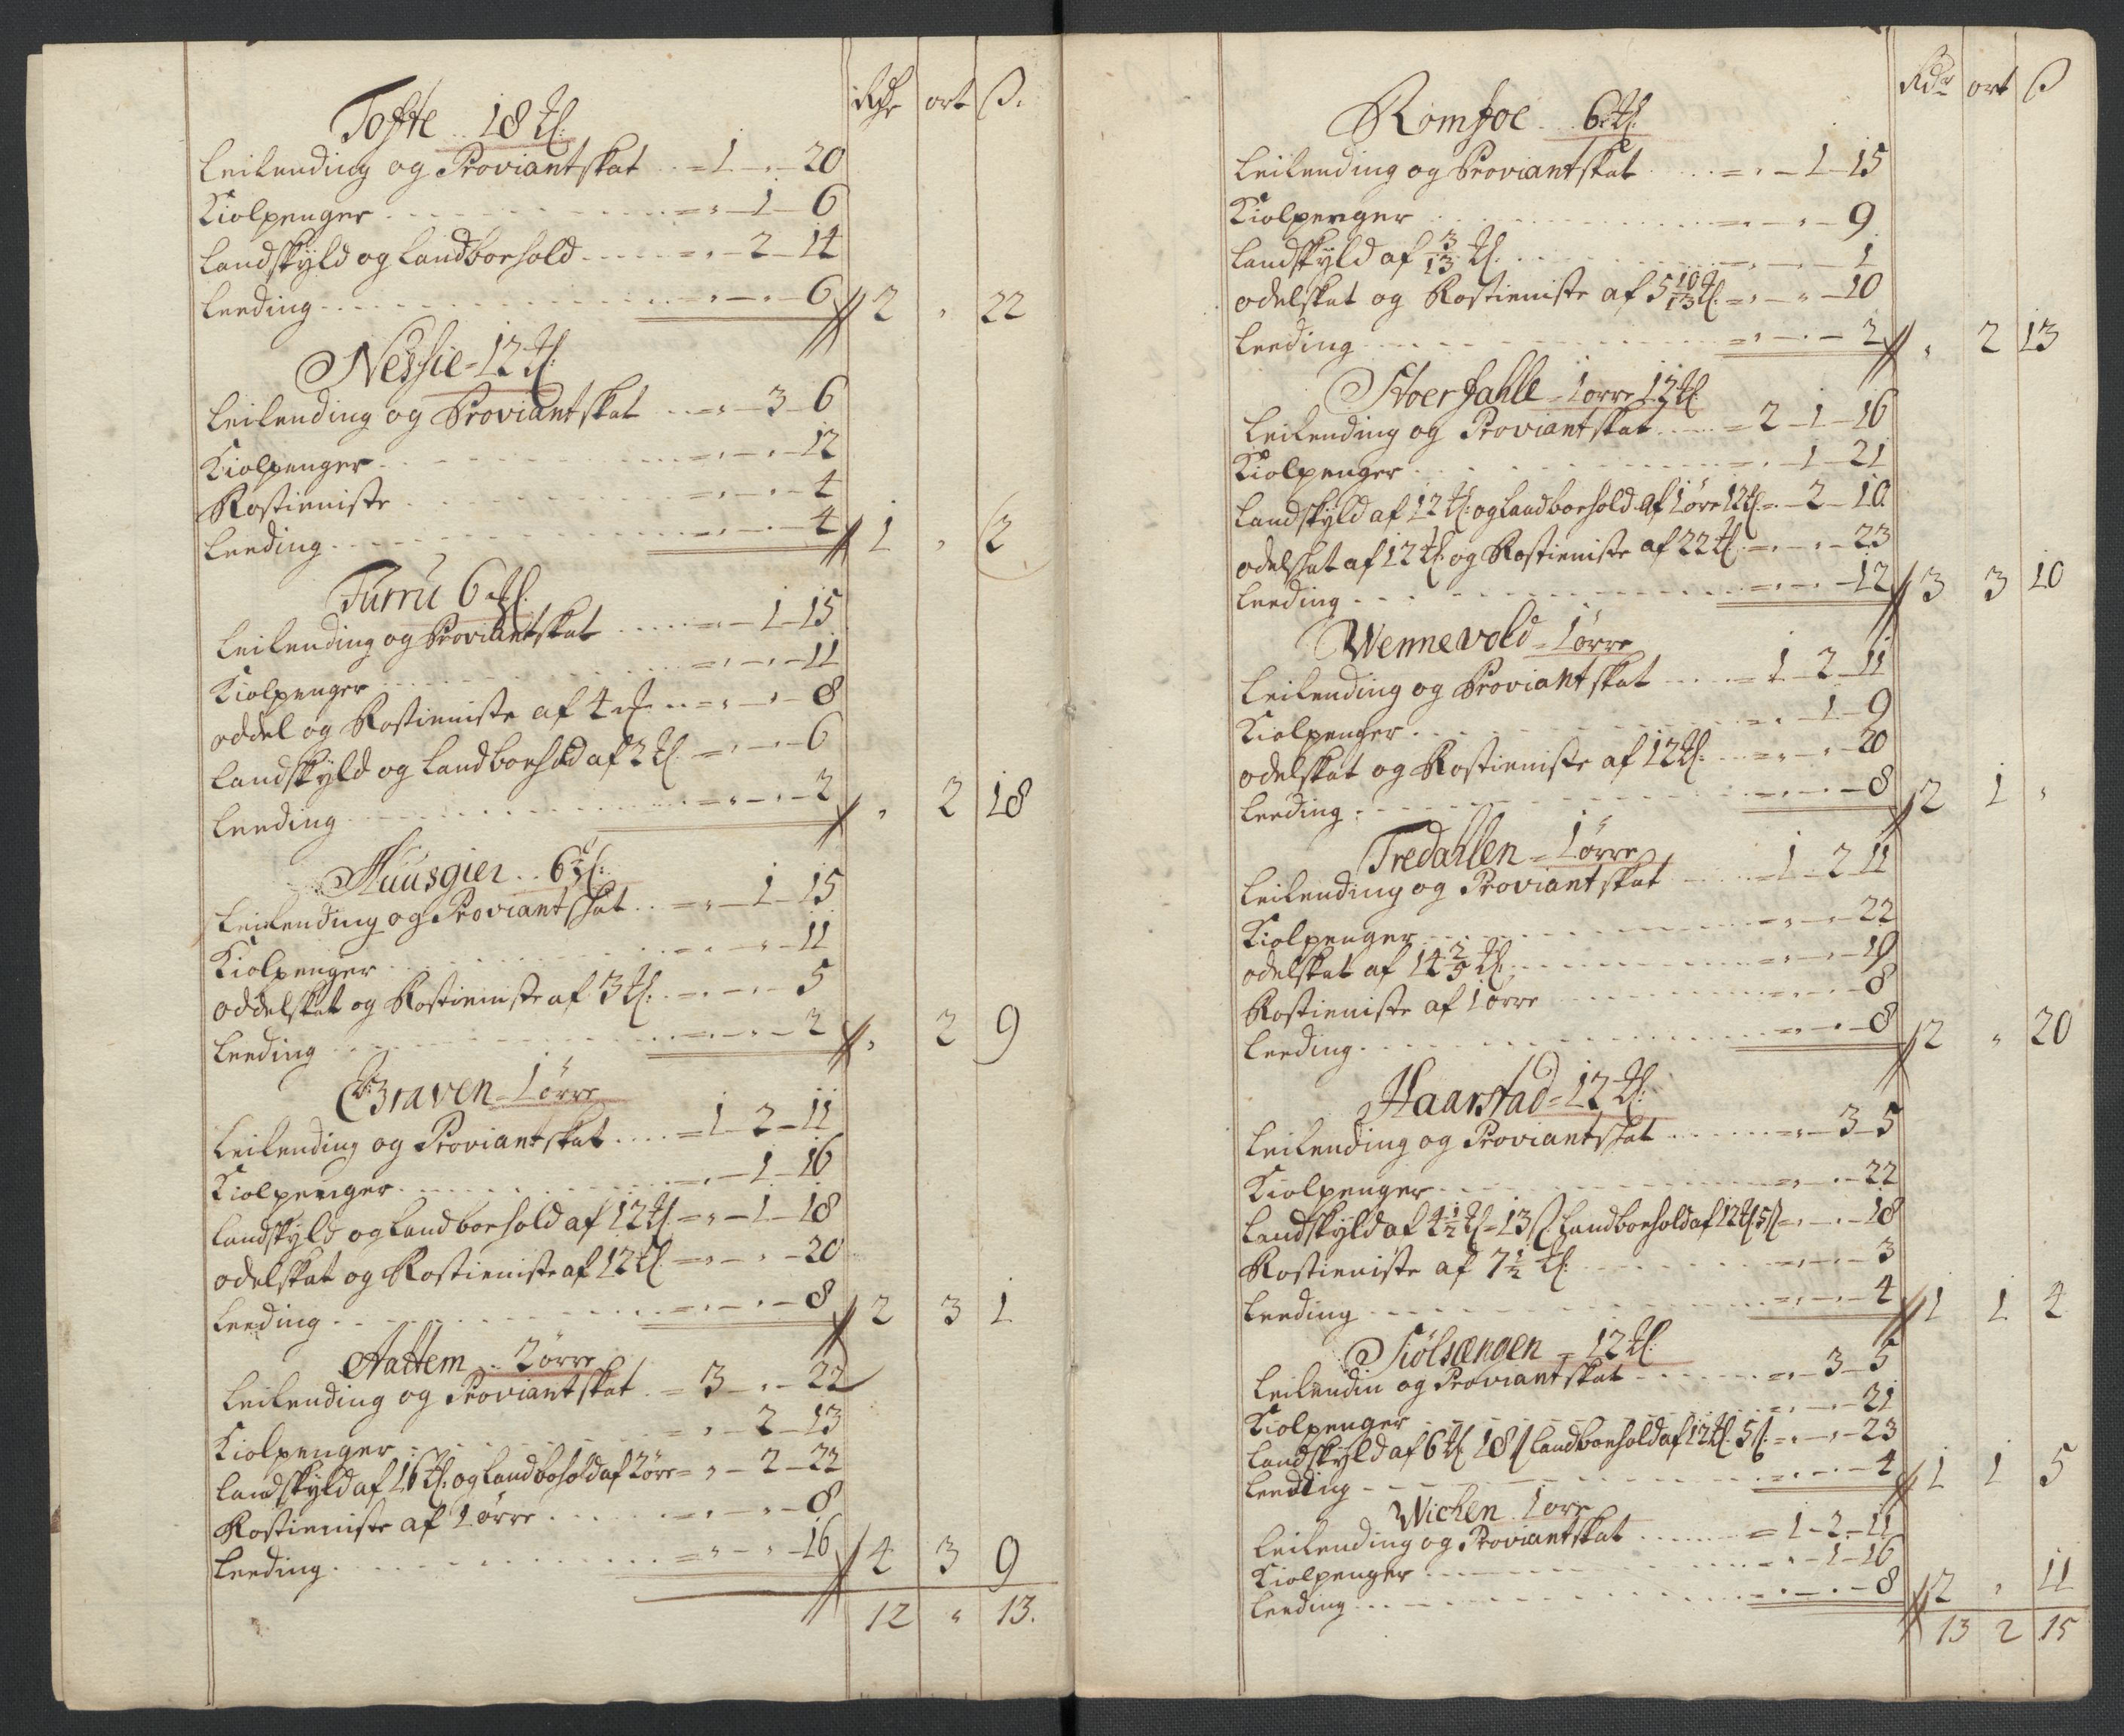 Rdr ort ß.
Tofte .. 18 ℔:
Leilending og Proviantskat .. = 1 - " - 20
Kiolpenger . . . = " - 1 - 6
Landskyld og Landboehold . . . = " - 2 - 14
Leeding . . . " - " - 6 2 " 22
Nessie = 12 ℔:
Leilending og Proviantskat . . = " - 3 - 6
Kiolpenger . . . = " - " - 12
Rostieniste . . . = " - " - 4
Leeding . . . = " - " - 4 1 " 2
Turru 6 ℔:
Leilending og Proviantskat . . . = " - 1 - 15
Kiolpenger . . . = " - " - 11
oddel og Rostieniste af 4 ℔ . . = " - " - 8
Landskyld og Landboehold af 2 ℔: = " - " - 6
Leeding . . . = " - " - 2 " 2 18
Huusgier .. 6 ℔:
Leilending og Proviantskat . . = " - 1 - 15
Kiolpenger . . . = " - " - 11
oddelskat og Rostieniste af 3 ℔: . . = " - " - 5
Leeding . . . = " - " - 2 " 2 9
Graven = 1 ørre
Leilending og Proviantskat . . . = 1 - 2 - 11
Kiolpenger . . . = " - 1 - 16
Landskyld og Landboehold af 12 ℔ = " - 1 - 18
odelskat og Rostieniste af 12 ℔ = " - " - 20
Leeding . . . = " - " - 8 2 3 1
Aattem .. 2 ørre
Leilending og Proviantskat . = 3 - " - 22
Kiolpenger . . . = " - 2 - 13
Landskyld af 16 ℔: og Landbohold af 2 øre = " - 2 - 22
Rostieniste af 1 ørre . . . = " - " - 8
Leeding . . . = " - " - 16 4 3 9
12 " 13.
Rdr ort ß
Romfoe . . 6 ℔:
Leilending og Proviantskat . . . = " - 1 - 15
Kiolpenger . . . = " - " - 9
Landskyld af 3/13 ℔: . . . = " - " - 1
odelskat og Rostieniste af 5 10/13 ℔: = " - " - 10
Leeding . . . = " - " - 2 " 2 13
Stoerfahle = 1 ørre 12 ℔
Leilending og Proviantskat . . . = 2 - 1 - 16
Kiolpenger . . . = " - 1 - 21
Landskyld af 12 ℔: og Landboehold af 1 øre 12 ℔ = " - 2 - 10
odelskat af 12 ℔ og Rostieniste af 22 ℔ = " - " - 23
Leeding . . . = " - " - 12 3 3 10
Wennevold = 1 ørre
Leilending og Proviantskat . . . = 1 - 2 - 11
Kiolpenger . . . = " - 1 - 9
odelskat og Rostieniste af 12 ℔: . . = " - " - 20
Leeding . . . = " - " - 8 2 1 "
Tredahlen = 1 ørre
Leilending og Proviantskat . . . = 1 - 2 - 11
Kiolpenger . . . = " - " - 22
odelskat af 14 2/5 ℔: . . . = " - " - 19
Rostieniste af 1 ørre . . . = " - " - 8
Leeding . . . = " - " - 8 2 " 20
Haarstad = 12 ℔:
Leilending og Proviantskat . . . = " - 3 - 5
Kiolpenger . . . = " - " - 22
Landskyld af 4 1/2 ℔ = 13 ß Landboehold af 12 ℔ 5 ß = " - " - 18
Rostieniste af 7 1/2 ℔: . . . = " - " - 3
Leeding . . . = " - " - 4 1 1 4
Siølsængen = 12 ℔:
Leilendin og Proviantskat . . . = " - 3 - 5
Kiolpenger . . . = " - " - 21
Landskyld af 6 ℔ 18 ß Landboehold af 12 ℔ 5 ß: = " - " - 23
Leeding . . . = " - " - 4 1 1 5
Wichen 1 øre
Leilending og Proviantskat . . . = 1 - 2 - 11
Kiolpenger . . . = " - 1 - 16
Leeding . . . = " - " - 8 2 " 11
13 2 15